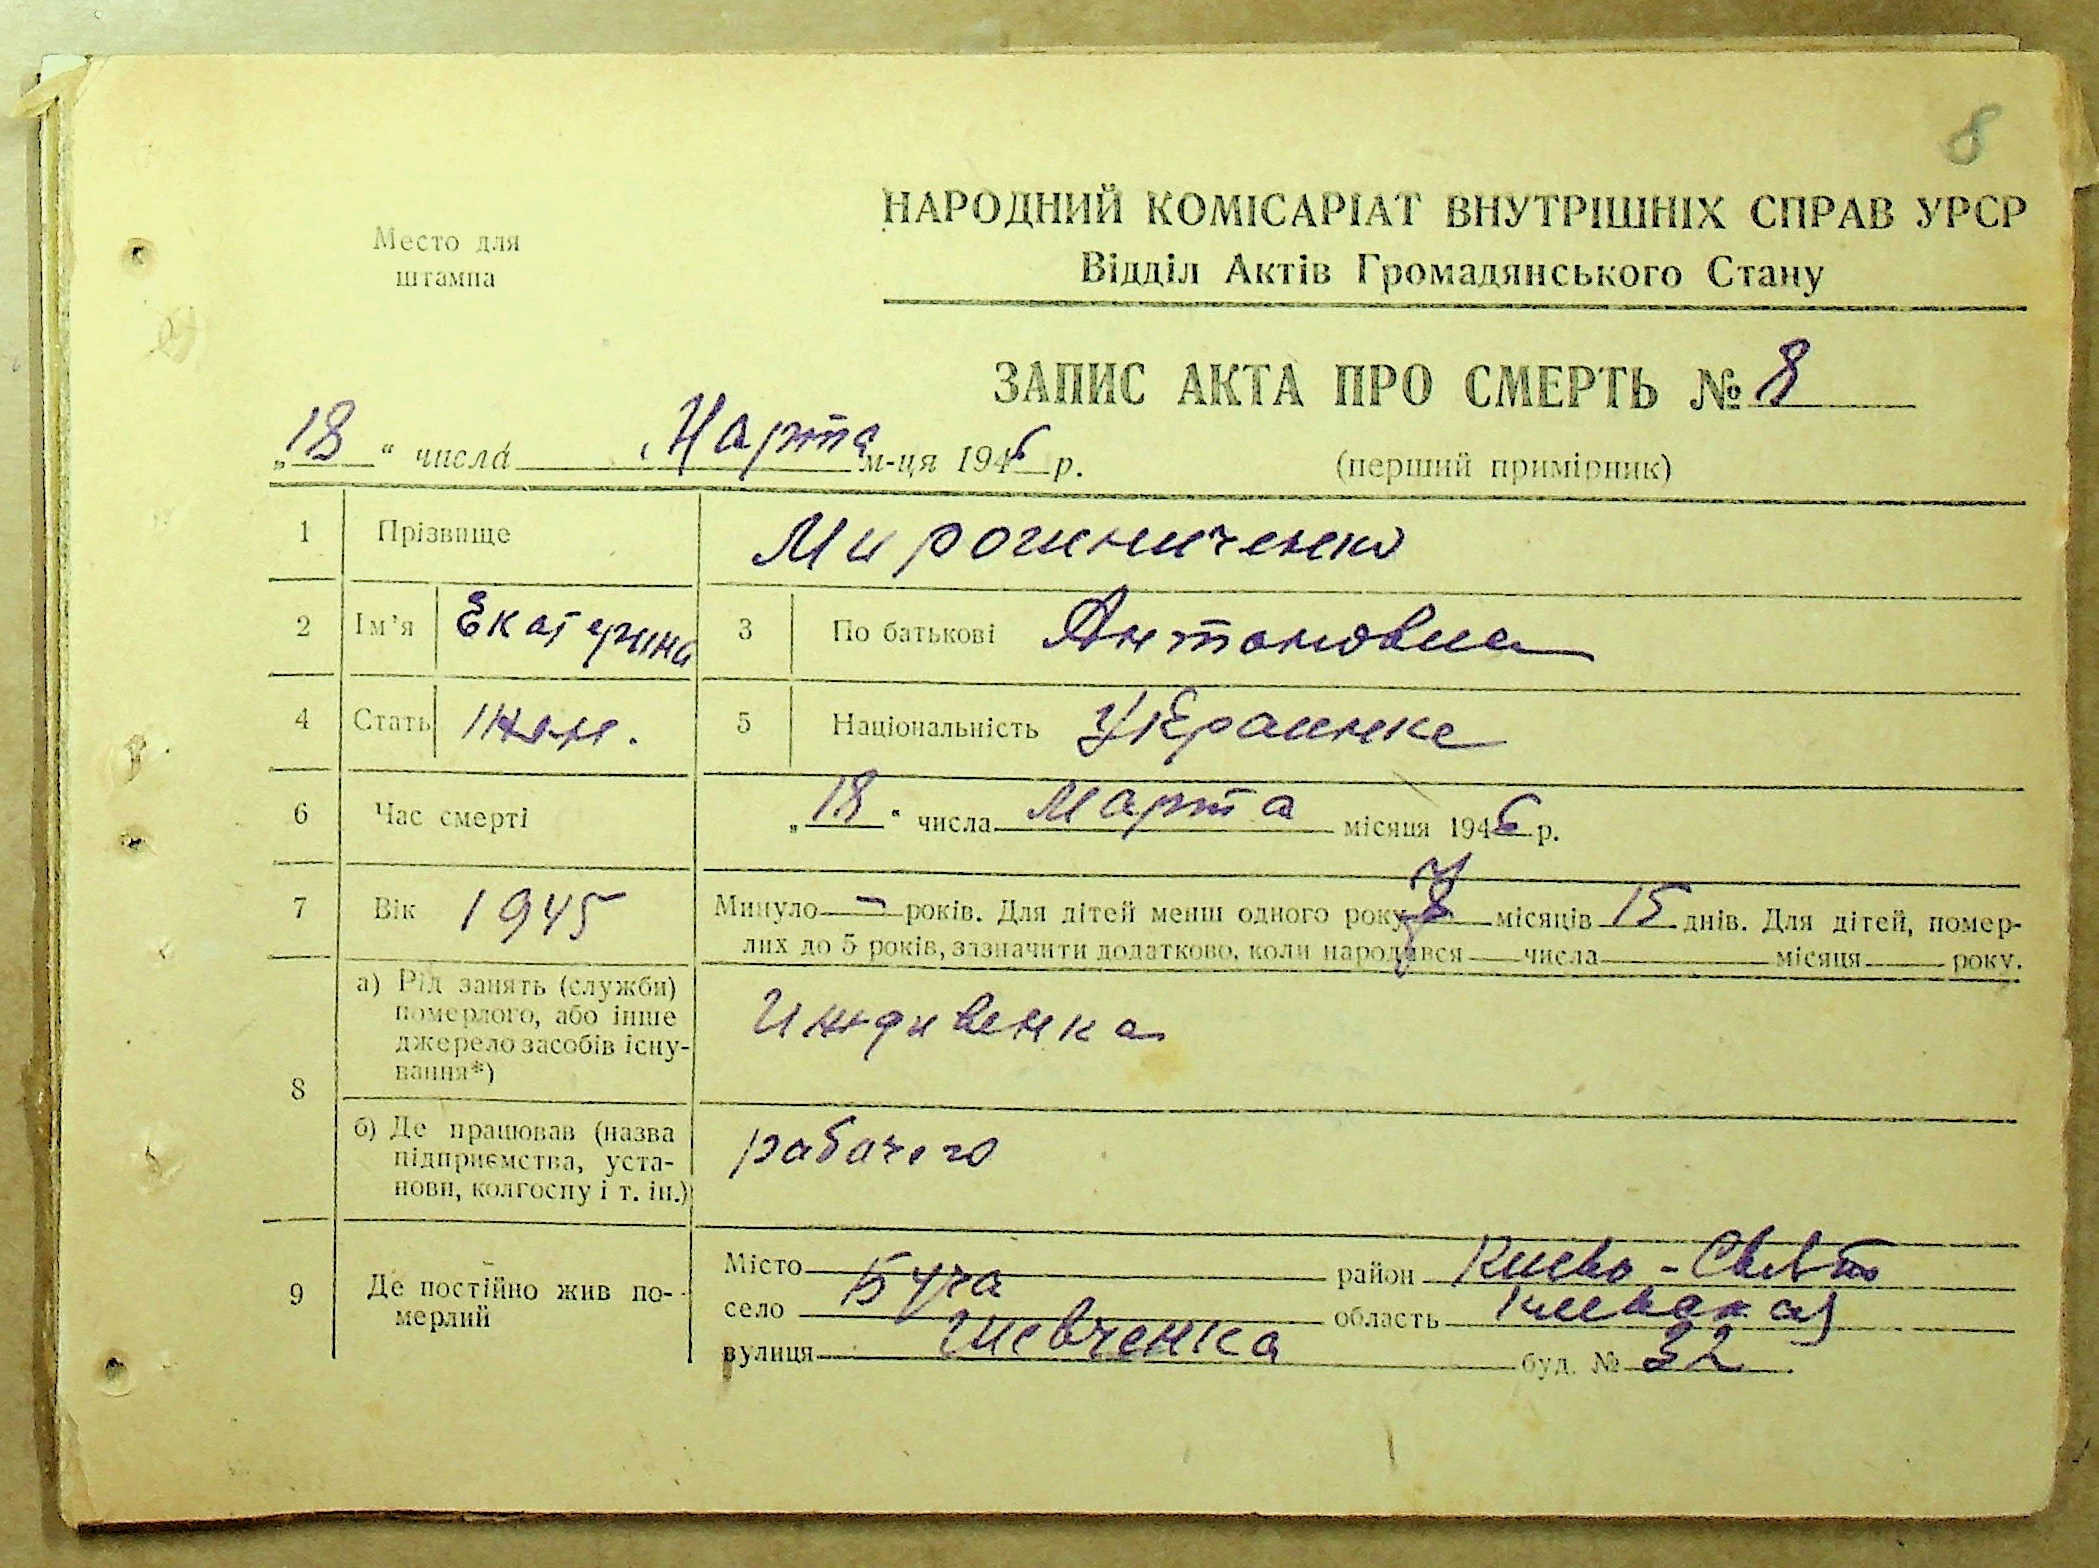 8
Место для
штампа
НАРОДНИЙ КОМІСАРІАТ ВНУТРІШНІХ СПРАВ УРСР
Відділ Актів Громадянського Стану
ЗАПИС АКТА ПРО СМЕРТЬ № 8
„18“ числа Марта м-ця 1946 р. (перший примірник)
1 Прізвище Мирошниченко
2 Ім’я Екатерина 3 По батькові Антоновна
4 Стать жен. 5 Національність Украинка
6 Час смерті „18“ числа Марта місяця 1946 р.
7 Вік 1945 Минуло — років. Для дітей менш одного року місяців 15 днів. Для дітей, помер-
лих до 5 років, зазначити додатково, коли народився числа місяця року.
8 а) Рід занять (служби)
померлого, або інше
джерело засобів існу-
вання*)
Иждивенка
б) Де працював (назва
підприємства, уста-
нови, колгоспу і т. ін.)
рабочего
9 Де постійно жив по-
мерлий
Місто Буча район Киево-Свят
село область Киевская
вулиця Шевченка буд. № 32